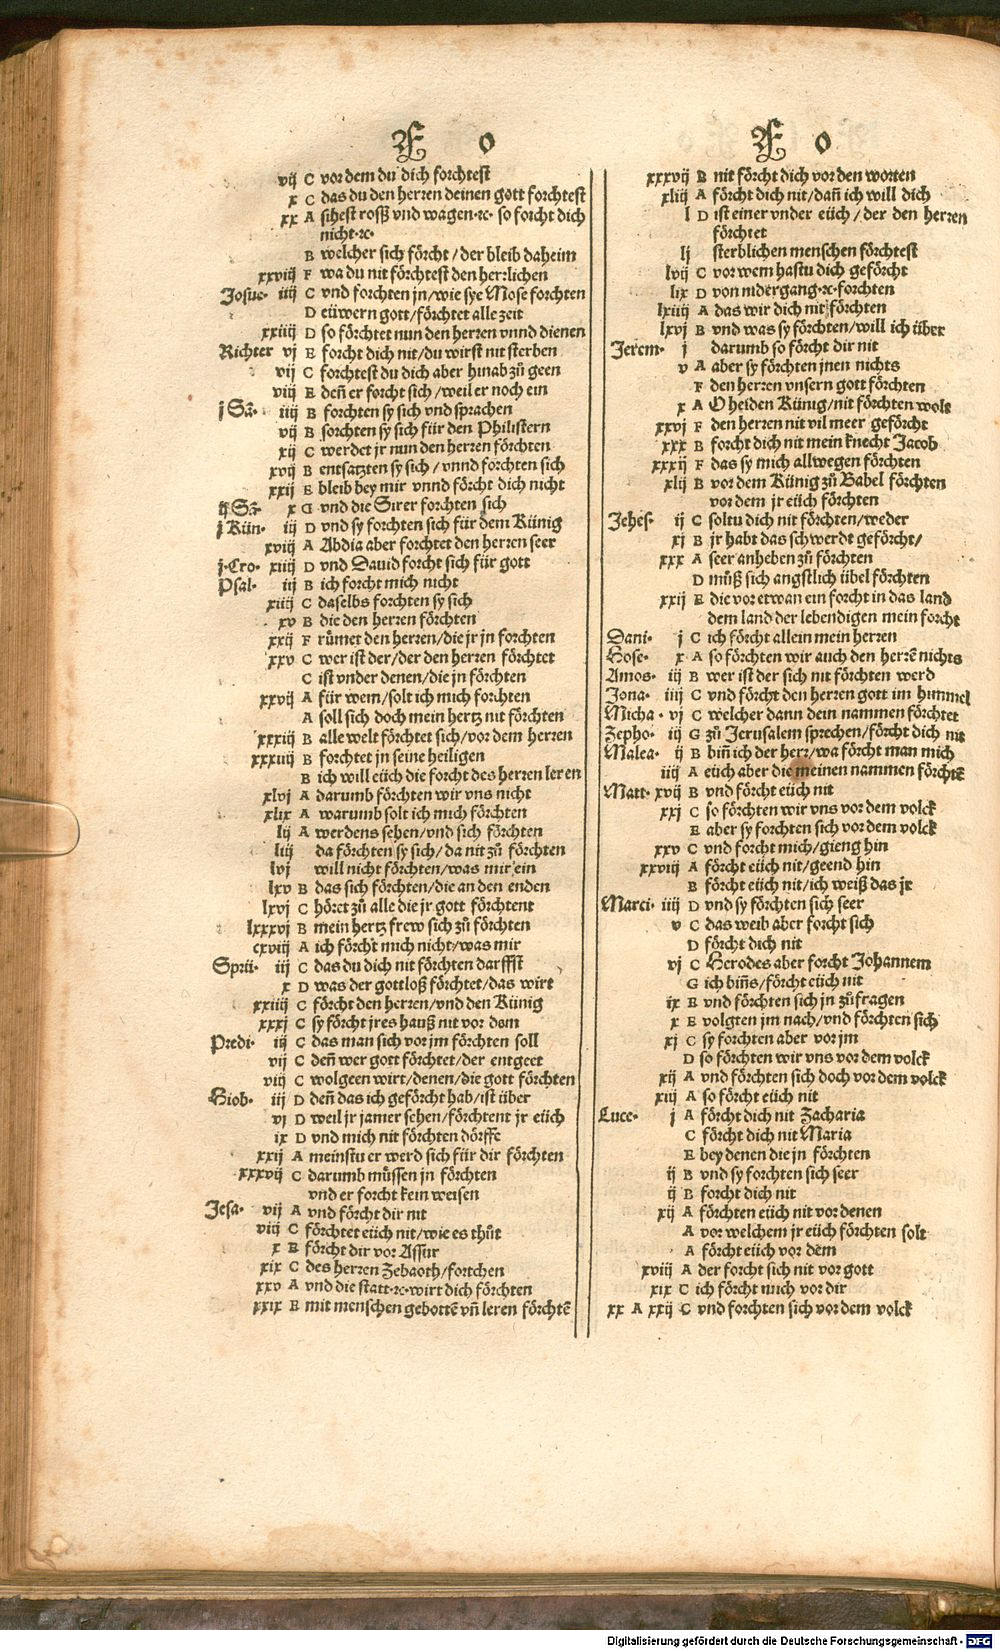 F o
vij C vor dem du dich forchtest
x C das du den herren deinen gott forchtest
xx A sihest rosß vnd wagen ⁊c. so forcht dich
nicht ⁊c.
B welcher sich förcht / der bleib daheim
xxviij F wa du nit förchtest den herrlichen
Josue. iiij C vnd forchten jn/wie sye Mose forchten
D eüwern gott/förchtet alle zeit
xxiiij D so förchtet nun den herren vnnd dienen
Richter vj E forcht dich nit/du wirst nit sterben
vij C forchtest du dich aber hinab zů geen
viij E deñ er forcht sich/weil er noch ein
j Sã. iiij B forchten sy sich vnd sprachen
vij B forchten sy sich für den Philistern
xij C werdet jr nun den herren förchten
xvij B entsatzten sy sich / vnnd forchten sich
xxij E bleib bey mir vnnd förcht dich nicht
ij Sã. x G vnd die Sirer forchten sich
j Kün. iij D vnd sy forchten sich für dem Künig
xviij A Abdia aber forchtet den herren seer
j. Cro. xiiij D vnd Dauid forcht sich für gott
Psal. iij B ich forcht mich nicht
xiiij C daselbs forchten sy sich
xv B die den herren förchten
xxij F růmet den herren/die jr jn forchten
xxv C wer ist der/der den herren förchtet
C ist vnder denen/die jn förchten
xxvij A für wem/solt ich mich forchten
A soll sich doch mein hertz nit förchten
xxxiij B alle welt förchtet sich/vor dem herren
xxxiiij B forchtet jn seine heiligen
B ich will eüch die forcht des herren leren
xlvj A darumb förchten wir vns nicht
xlix A warumb solt ich mich förchten
lij A werdens sehen/vnd sich förchten
liij da förchten sy sich/da nit zů förchten
lvj will nicht förchten/was mir ein
lxv B das sich förchten/die an den enden
lxvj C höret zů alle die jr gott förchtent
lxxxvj B mein hertz frew sich zů förchten
cxviij A ich förcht mich nicht/was mir
Sprü. iij C das du dich nit förchten darffst
x D was der gottloß förchtet/das wirt
xxiiij C förcht den herren/vnd den Künig
xxxj C sy förcht jres hauß nit vor dem
Predi. iij C das man sich vor jm förchten soll
vij C deñ wer gott förchtet/der entgeet
viij C wolgeen wirt/denen/die gott förchten
Hiob. iij D deñ das ich geförcht hab/ist über
vj D weil jr jamer sehen/förchtent jr eüch
ix D vnd mich nit förchten dörffe
xxij A meinstu er werd sich für dir förchten
xxxvij C darumb müssen jn förchten
vnd er forcht kein weisen
Jesa. vij A vnd förcht dir nit
viij C förchtet eüch nit/wie es thůt
x E förcht dir vor Assur
xix C des herren Zebaoth/fortchen
xxv A vnd die statt ⁊c. wirt dich förchten
xxix E mit menschen gebottẽ vñ leren förchtẽ
F o
xxxvij B nit förcht dich vor den worten
xliij A förcht dich nit/dañ ich will dich
l D ist einer vnder eüch / der den herren
förchtet
lj sterblichen menschen förchtest
lvij C vor wem hastu dich geförcht
lix D von nidergang ⁊c. forchten
lxiiij A das wir dich nit förchten
lxvj B vnd was sy förchten/will ich über
Jerem. j darumb so förcht dir nit
v A aber sy förchten jnen nichts
F den herren vnsern gott förchten
x A O heiden Künig/nit förchten wolt
xxvj F den herren nit vil meer geförcht
xxx B forcht dich nit mein knecht Jacob
xxxij F das sy mich allwegen förchten
xlij B vor dem Künig zů Babel förchten
vor dem jr eüch förchten
Jehes. ij C soltu dich nit förchten/weder
xj B jr habt das schwerdt geförcht/
xxx A seer anheben zů förchten
D můß sich angstlich übel förchten
xxij E die vor etwan ein forcht in das land
dem land der lebendigen mein forcht
Dani. j C ich förcht allein mein herren
Hose. x A so förchten wir auch den herrẽ nichts
Amos. iij B wer ist der sich nit förchten werd
Jona. iiij C vnd förcht den herren gott im himmel
Micha. vj C welcher dann dein nammen förchtet
Zepho. iij G zů Jerusalem sprechen/förcht dich nit
Malea. ij B biñ ich der herr/wa förcht man mich
iiij A eüch aber die meinen nammen förchtẽ
Matt. xvij B vnd förcht eüch nit
xxj C so förchten wir vns vor dem volck
E aber sy forchten sich vor dem volck
xxv C vnd forcht mich/gieng hin
xxviij A förcht eüch nit/geend hin
B förcht eüch nit/ich weiß das jr
Marci. iiij D vnd sy förchten sich seer
v C das weib aber forcht sich
D förcht dich nit
vj C Herodes aber forcht Johannem
G ich biñs/förcht eüch nit
ix E vnd förchten sich jn zůfragen
x E volgten jm nach/vnd förchten sich
xj C sy forchten aber vor jm
D so förchten wir vns vor dem volck
xij A vnd förchten sich doch vor dem volck
xiij A so förcht eüch nit
Luce. j A förcht dich nit Zacharia
C förcht dich nit Maria
E bey denen die jn förchten
ij B vnd sy forchten sich seer
ij B forcht dich nit
xij A förchten eüch nit vor denen
A vor welchem jr eüch förchten solt
A förcht eüch vor dem
xviij A der forcht sich nit vor gott
xix C ich förcht mich vor dir
xx A xxij C vnd forchten sich vor dem volck
Digitalisierung gefördert durch die Deutsche Forschungsgemeinschaft - DFG